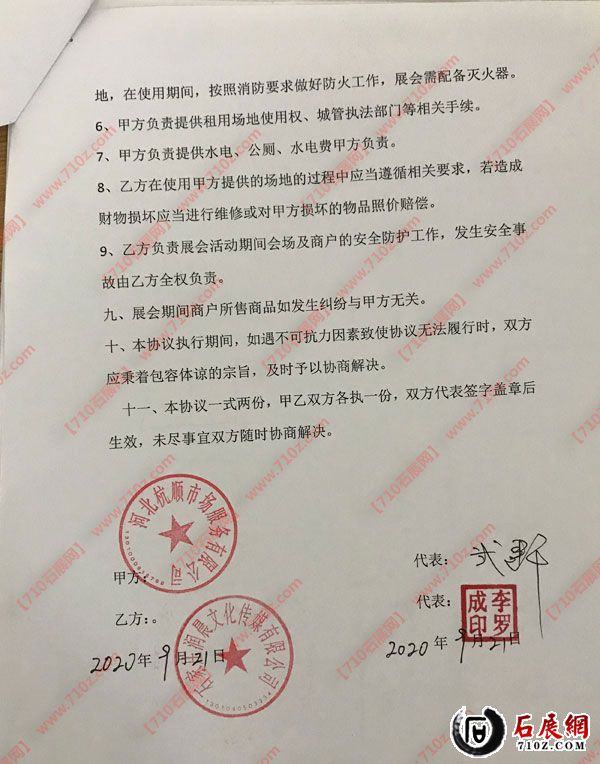 地，在使用期间，按照消防要求做好防火工作，展会需配备灭火器。
6、甲方负责提供租用场地使用权、城管执法部门等相关手续。
7、甲方负责提供水电、公厕、水电费甲方负责。
8、乙方在使用甲方提供的场地的过程中应当遵循相关要求，若造成
财物损坏应当进行维修或对甲方损坏的物品照价赔偿。
9、乙方负责展会活动期间会场及商户的安全防护工作，发生安全事
故由乙方全权负责。
九、展会期间商户所售商品如发生纠纷与甲方无关。
十、本协议执行期间，如遇不可抗力因素致使协议无法履行时，双方
应秉着包容体谅的宗旨，及时予以协商解决。
十一、本协议一式两份，甲乙双方各执一份，双方代表签字盖章后
生效，未尽事宜双方随时协商解决。
河北杭顺市场服务有限公司
甲方：
代表：
乙方：。
石家庄润晨文化传媒有限公司
1301040503334
代表：
李罗成印
2020年9月21日
2020年9月21日
【710石展网】www.710z.com
石展網
710Z.COM